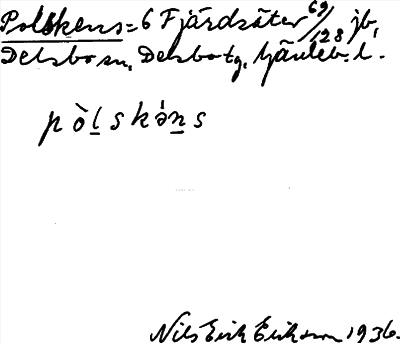 Polskens = 6 Fjärdsäter 69/128 jb,
Delsbo sn, Delsbo tg, Gävleb. l.
pòlskəns
Nils Erik Erikson 1936.